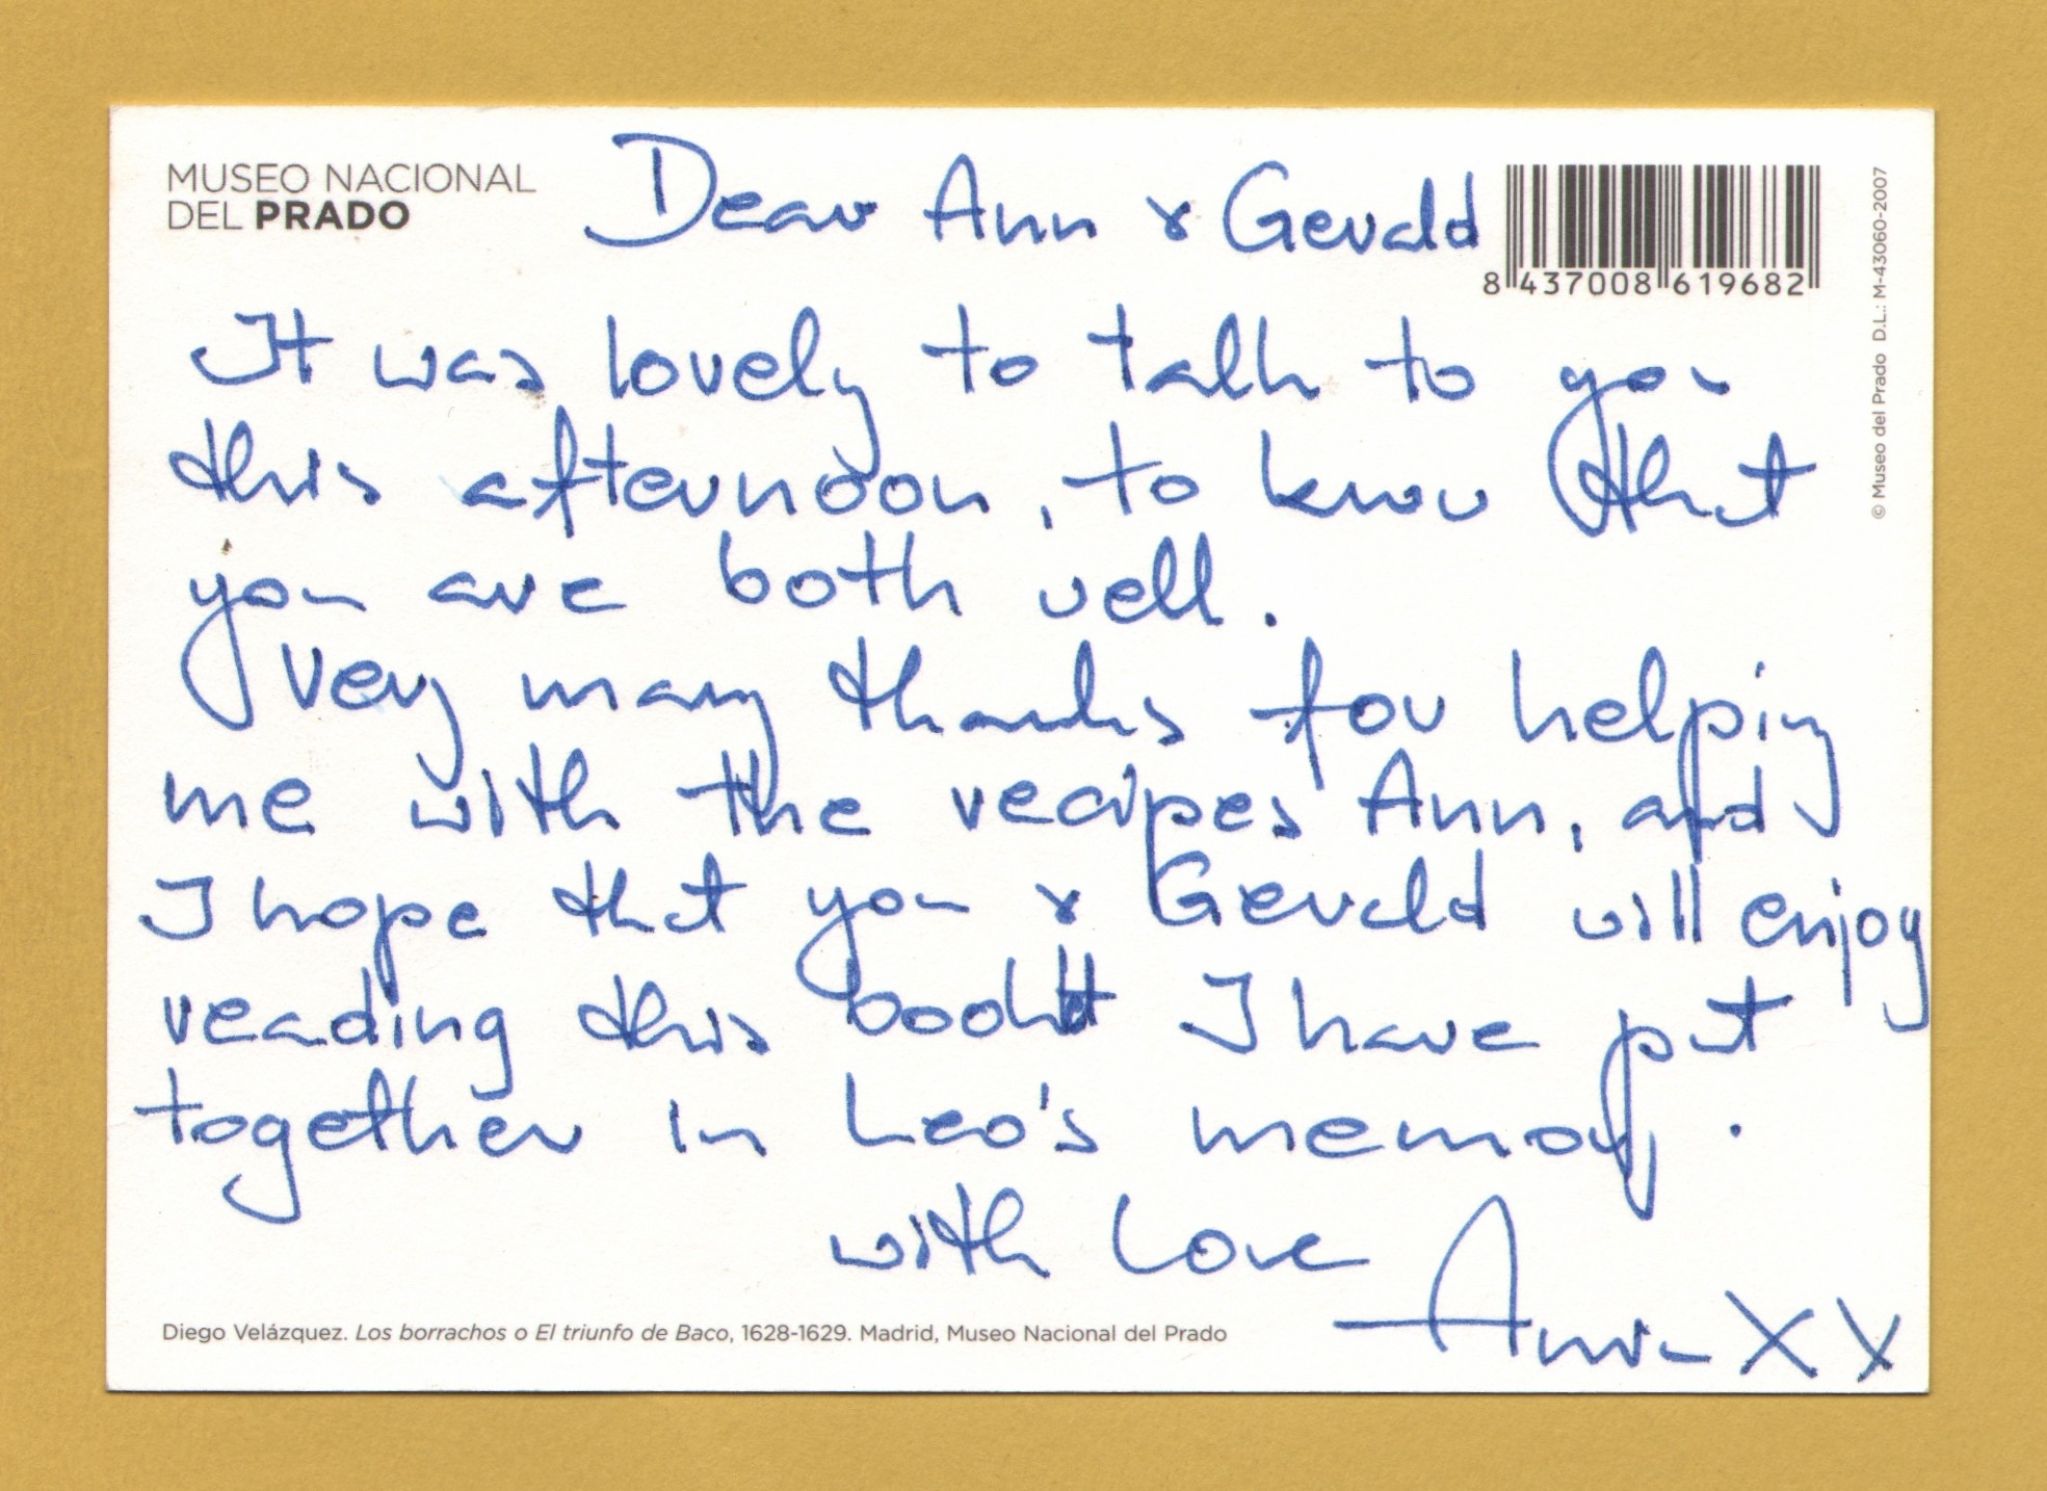 MUSEO NACIONAL
DEL PRADO
Dear Ann & Gerald
8 437008 619682
© Museo del Prado D.L.: M-43060-2007
It was lovely to talk to you
this afternoon, to know that
you are both well.
Very many thanks for helping
me with the recipes Ann, and
I hope that you & Gerald will enjoy
reading this I have put
together in Leo's memory.
with love
XX
Diego Velázquez. Los borrachos o El triunfo de Baco, 1628-1629. Madrid, Museo Nacional del Prado